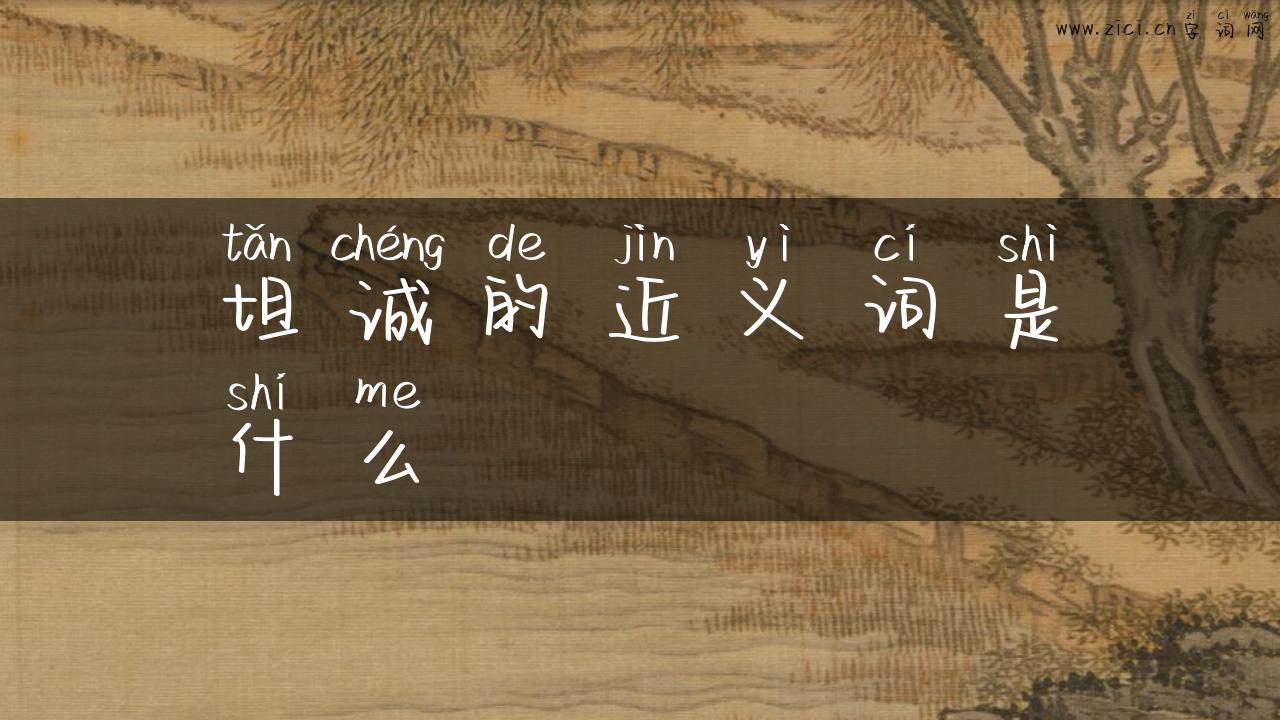 zì cí wǎng
www.zici.cn字词网
tǎn chéng de jìn yì cí shì
坦诚的近义词是
shí me
什么